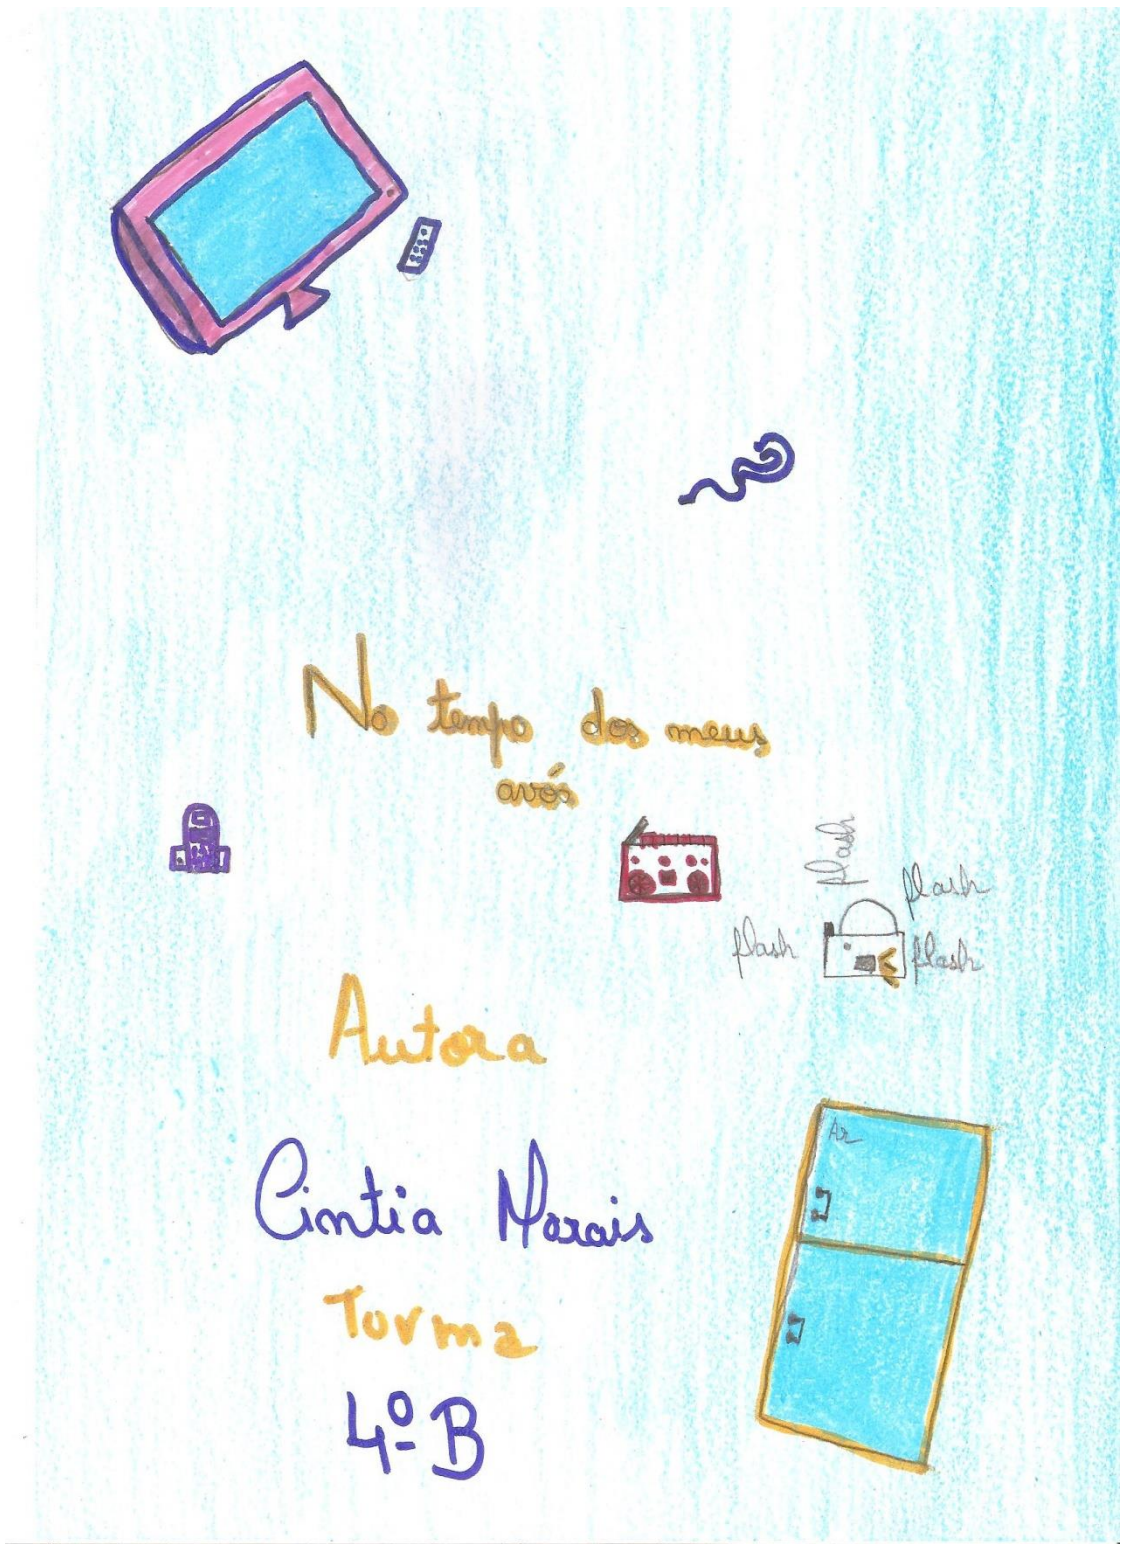 No tempo dos meus
avós
flash
flash
flash
flash
Autora
Cintia Morais
Turma
4º B